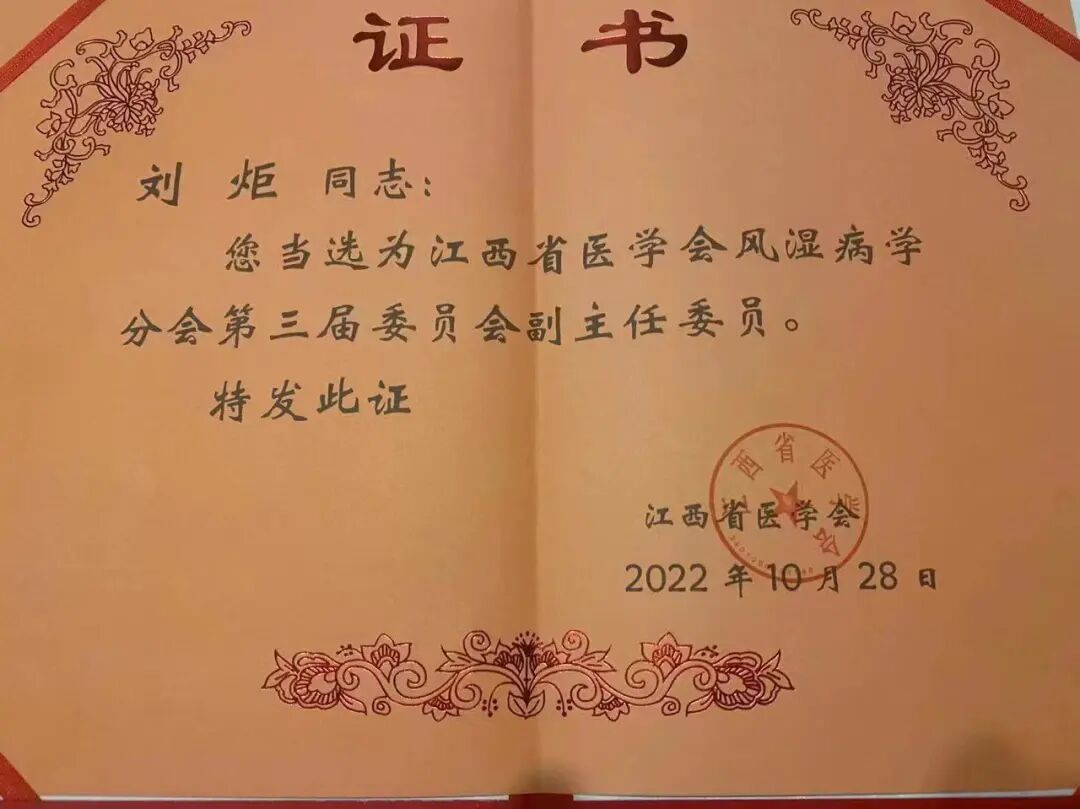 证 书
刘 炬 同志：
您当选为江西省医学会风湿病学
分会第三届委员会副主任委员。
特发此证
江西省医学会
江西省医学会
2022 年 10 月 28 日